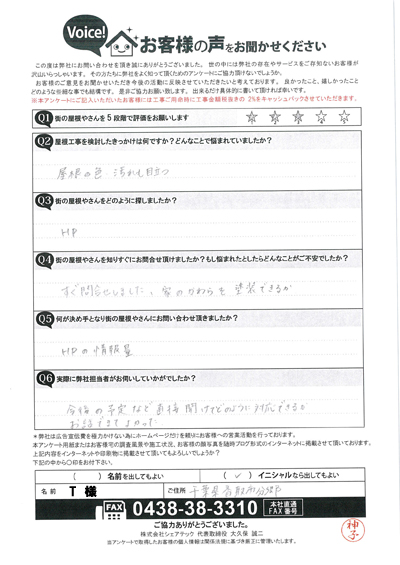 Voice! お客様の声をお聞かせください
この度は弊社にお問い合わせを頂き誠にありがとうございました。世の中には弊社の存在やサービスをご存知ないお客様が
沢山いらっしゃいます。その方たちに弊社をよく知って頂くためのアンケートにご協力頂けないでしょうか。
お客様のご意見をお聞かせいただき今後の活動に反映させていただきたいと考えております。良かったこと、嬉しかったこと
どのような些細な事でも結構です。是非ご協力お願い致します。出来るだけ具体的に書いて頂ければ幸いです。
※本アンケートにご記入いただいたお客様には工事ご用命時に工事金額税抜きの 2%キャッシュバックさせていただきます。
Q1 街の屋根やさんを5段階で評価をお願いします ☆ ☆ ☆ ☆ ☆
Q2 屋根工事を検討したきっかけは何ですか?どんなことで悩まれていましたか?
屋根の色 汚れも目立つ
Q3 街の屋根やさんをどのように探しましたか?
HP
Q4 街の屋根やさんを知りすぐにお問合せ頂けましたか?もし悩まれたとしたらどんなことがご不安でしたか?
すぐ問合せしました、家のかわらを塗装できるか
Q5 何が決め手となり街の屋根やさんにお問い合わせ頂きましたか?
HPの情報量
Q6 実際に弊社担当者がお伺いしていかがでしたか?
今後の予定など直接聞けてどのように対応できるか
お話できてよかった
※弊社は広告宣伝費を極力かけない為にホームページだけを頼りにお客様への営業活動を行っております。
本アンケート用紙またはお客様宅の調査風景や施工状況、お客様の顔写真を随時ブログ形式でインターネットに掲載させて頂いております。
上記内容をインターネットや印刷物に掲載させて頂いてもよろしいでしょうか?
下記の中から〇印をお付け下さい。
( ) 名前を出してもよい ( ✓ ) イニシャルなら出してもよい
名前 T 様 ご住所 千葉県香取市
FAX 0438-38-3310 本社直通 FAX番号
ご協力ありがとうございました。
株式会社シェアテック 代表取締役 大久保 誠二
※アンケートで取得したお客様の個人情報は関係法規に基づき厳正に管理いたします。
神子